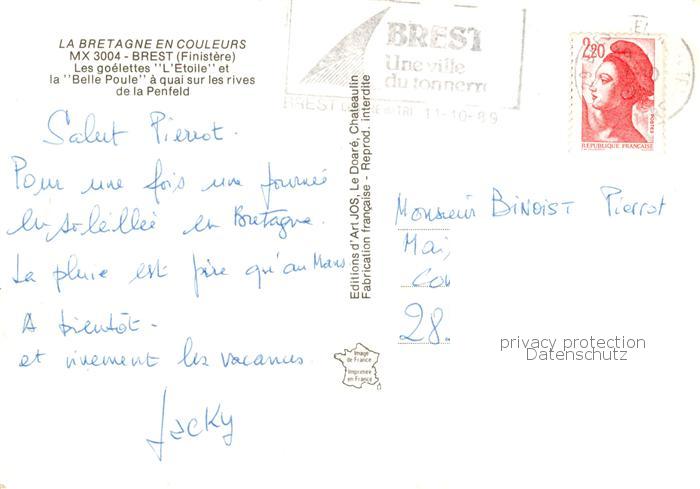 LA BRETAGNE EN COULEURS
MX 3004 - BREST (Finistère)
Les goélettes "L'Etoile" et
la "Belle Poule" à quai sur les rives
de la Penfeld
Salut Pierrot.
Pour une fois une journée
ensoleillée en Bretagne.
La pluie est pire qu'au Mans
A bientôt -
et vivement les vacances.
Jacky
Editions d'Art JOS, Le Doaré, Chateaulin
Fabrication française - Reprod. interdite
Image
de France
Imprimée
en France
BREST
Une ville
du tonnerre
BREST
11-10-89
2,20
POSTES
REPUBLIQUE FRANÇAISE
Monsieur BINOIST Pierrot
Mai,
Cou
28.
privacy protection
Datenschutz